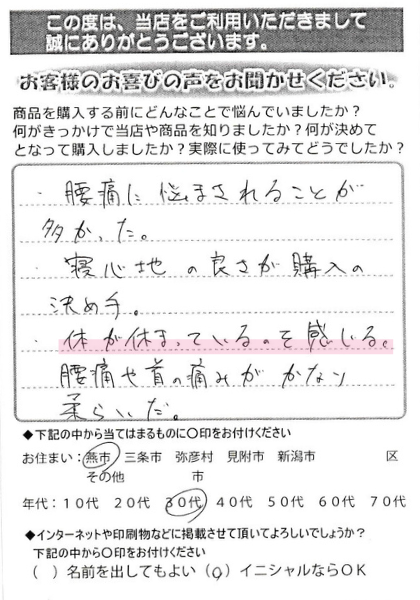 この度は、当店をご利用いただきまして
誠にありがとうございます。
お客様のお喜びの声をお聞かせください。
商品を購入する前にどんなことで悩んでいましたか?
何がきっかけで当店や商品を知りましたか?何が決めて
となって購入しましたか?実際に使ってみてどうでしたか?
・腰痛に悩まされることが
多かった。
・寝心地の良さが購入の
決め手。
・体が休まっているのを感じる。
腰痛や首の痛みがかなり
柔らいだ。
◆下記の中から当てはまるものに〇印をお付けください
お住まい:燕市 三条市 弥彦村 見附市 新潟市 区
その他 市
年代:10代 20代 30代 40代 50代 60代 70代
◆インターネットや印刷物などに掲載させて頂いてよろしいでしょうか?
下記の中から〇印をお付けください
( )名前を出してもよい (〇)イニシャルならOK